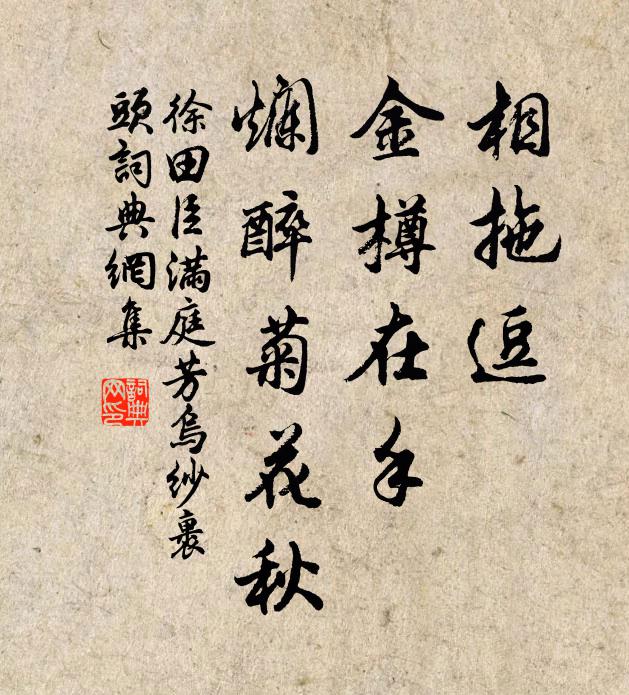 相拖逗
金樽在手
爛醉菊花秋
徐田臣滿庭芳烏紗裹
頭詞典網集
詞典
网印